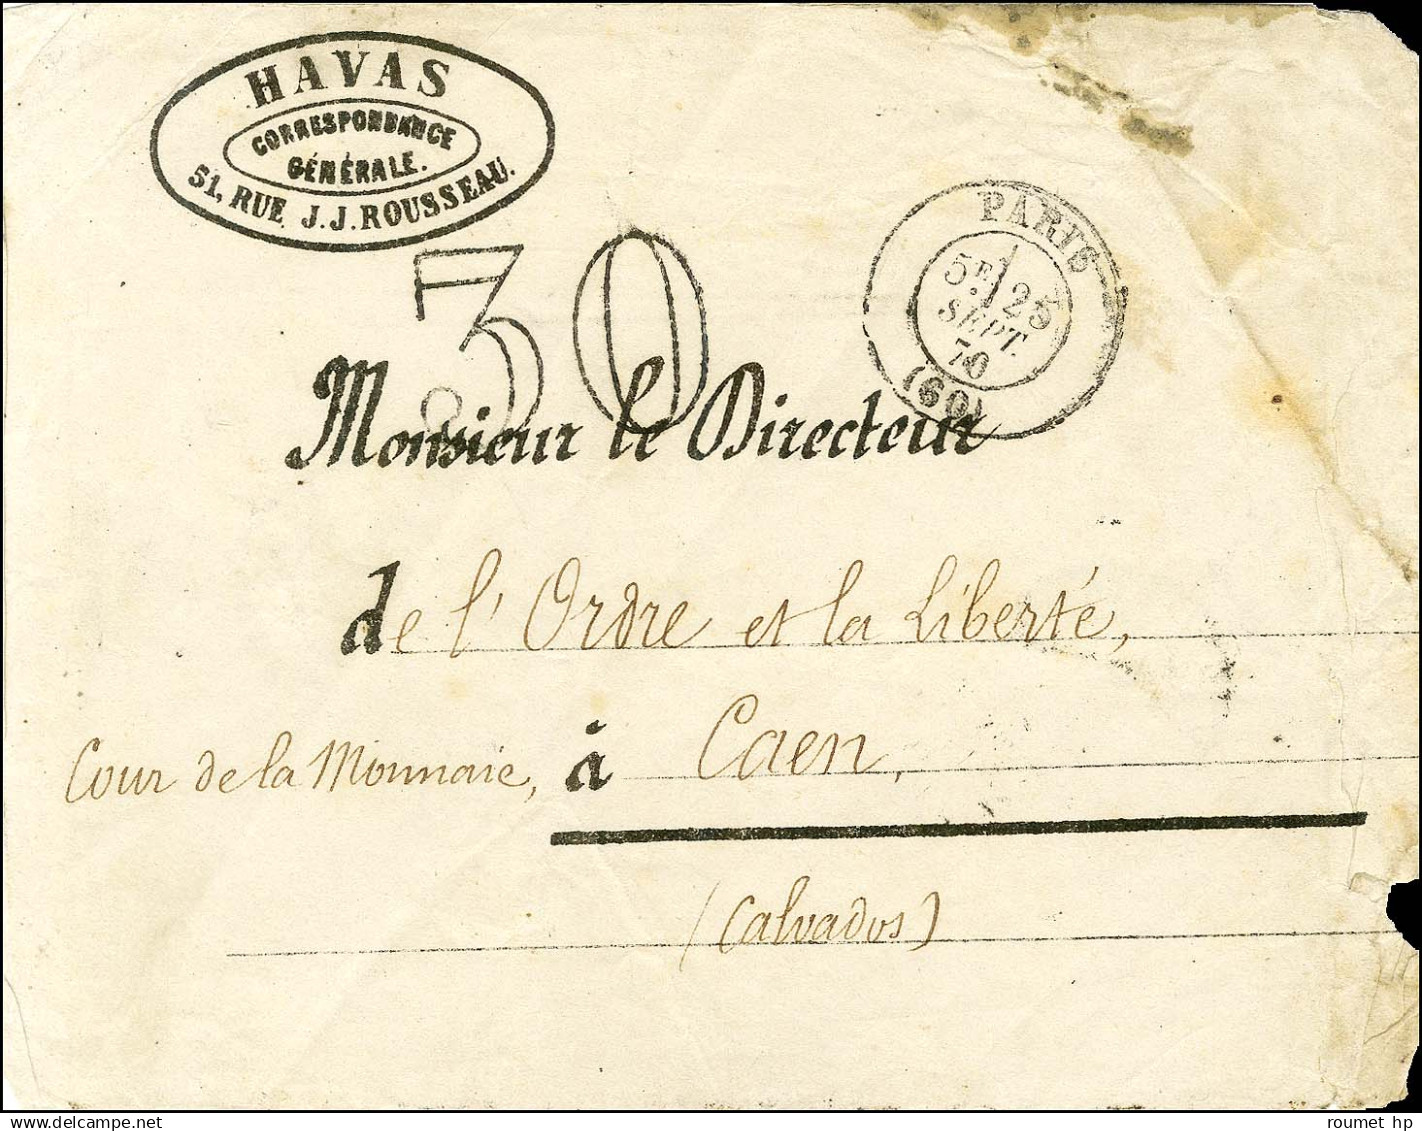 HAVAS
CORRESPONDANCE
GÉNÉRALE.
51, RUE J.J. ROUSSEAU.
30
PARIS
5E 25
SEPT.
70
(60)
Monsieur le Directeur
de l'Ordre et la Liberté,
Cour de la Monnaie, à Caen,
(Calvados)
delcampe.net
roumet hp